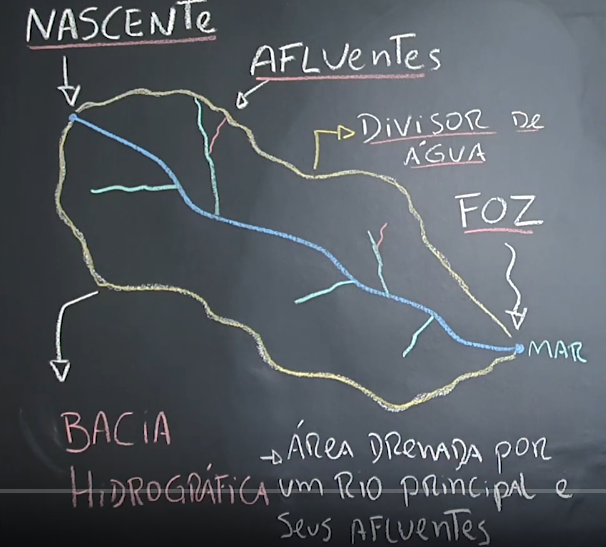 NASCENTE
AFLUENTES
DIVISOR DE
ÁGUA
FOZ
MAR
BACIA
HIDROGRÁFICA
ÁREA DRENADA POR
UM RIO PRINCIPAL E
SEUS AFLUENTES